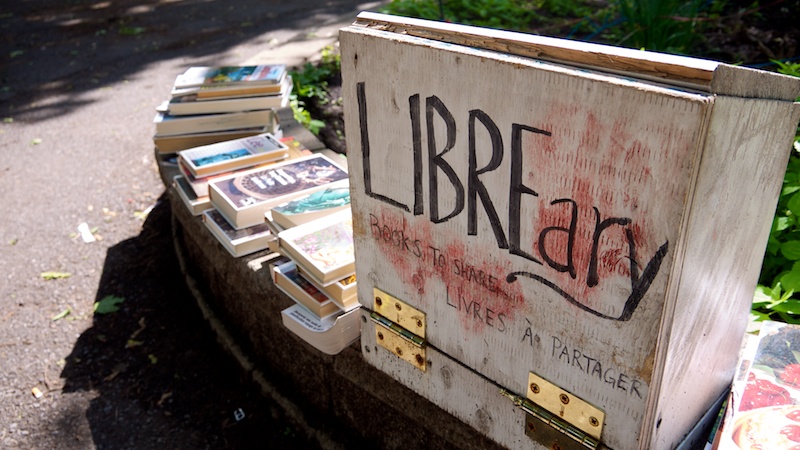 LIBREary
BOOKS TO SHARE
LIVRES À PARTAGER